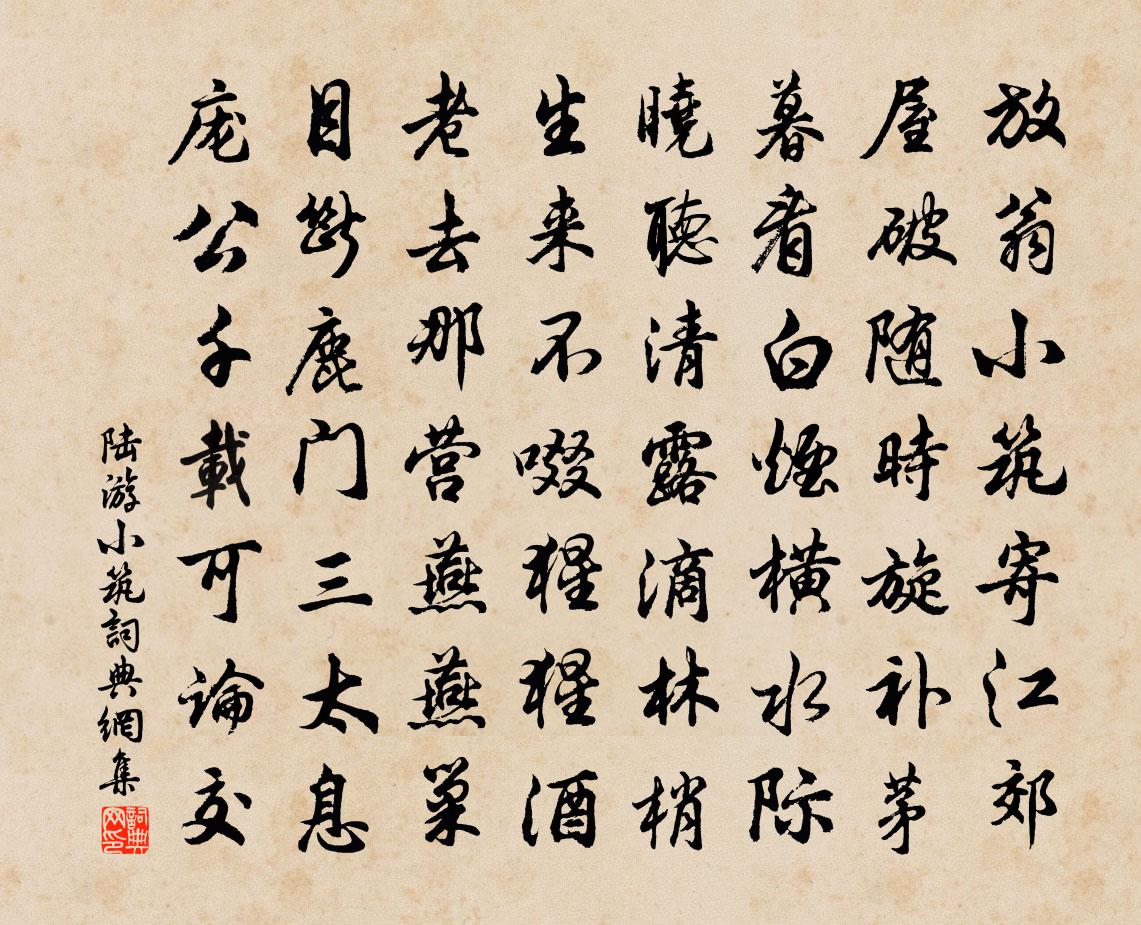 放翁小筑寄江郊
屋破随時旋补茅
暮看白煙橫水际
曉聽清露滴林梢
生来不啜猩猩酒
老去那营燕燕巢
目斷鹿门三太息
庞公千載可論交
陆游小筑詞典網集
詞典网印